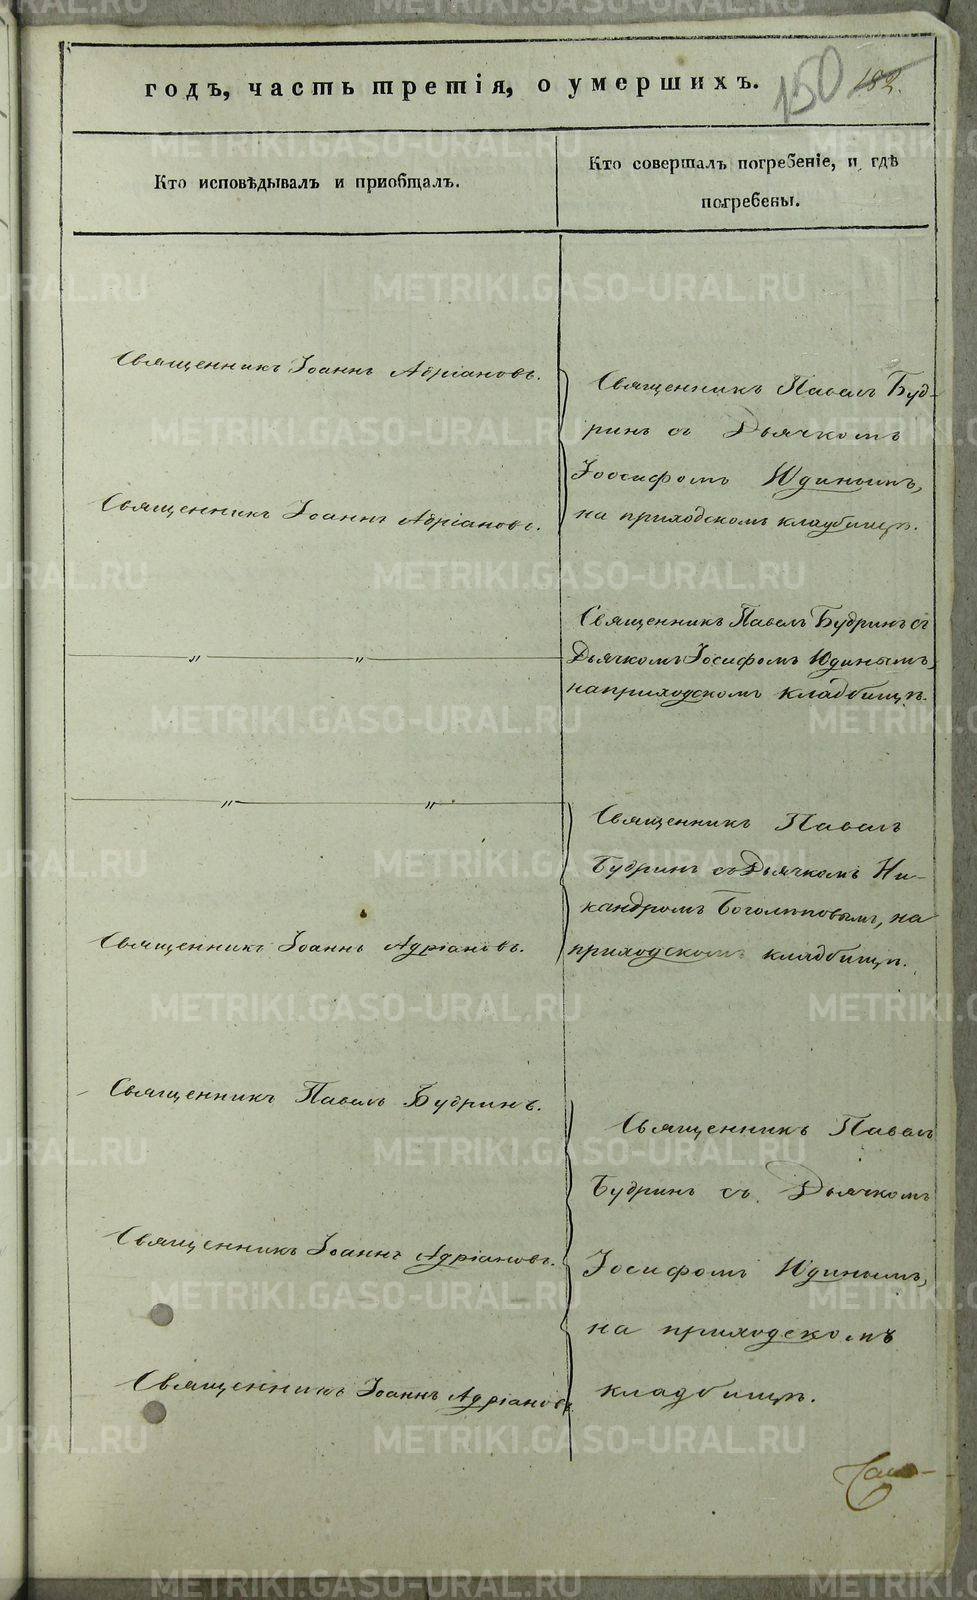 годъ, часть третія, о умершихъ.
150 182.
Кто исповѣдывалъ и пріобщалъ.
Кто совершалъ погребеніе, и гдѣ
погребены.
Священникъ Іоаннъ Адріановъ.
Священникъ Павелъ Буд-
ринъ съ Дьячкомъ
Іосифомъ Юдинымъ,
на приходскомъ кладбищѣ.
Священникъ Іоаннъ Адріановъ.
Священникъ Павелъ Будринъ съ
Дьячкомъ Іосифомъ Юдинымъ,
на приходскомъ кладбищѣ.
Священникъ Павелъ
Будринъ съ Дьячкомъ Ни-
кандромъ Боголѣповымъ, на
приходскомъ кладбищѣ.
Священникъ Іоаннъ Адріановъ.
Священникъ Павелъ Будринъ.
Священникъ Павелъ
Будринъ съ Дьячкомъ
Іосифомъ Юдинымъ,
на приходскомъ
кладбищѣ.
Священникъ Іоаннъ Адріановъ.
Священникъ Іоаннъ Адріановъ.
METRIKI.GASO-URAL.RU